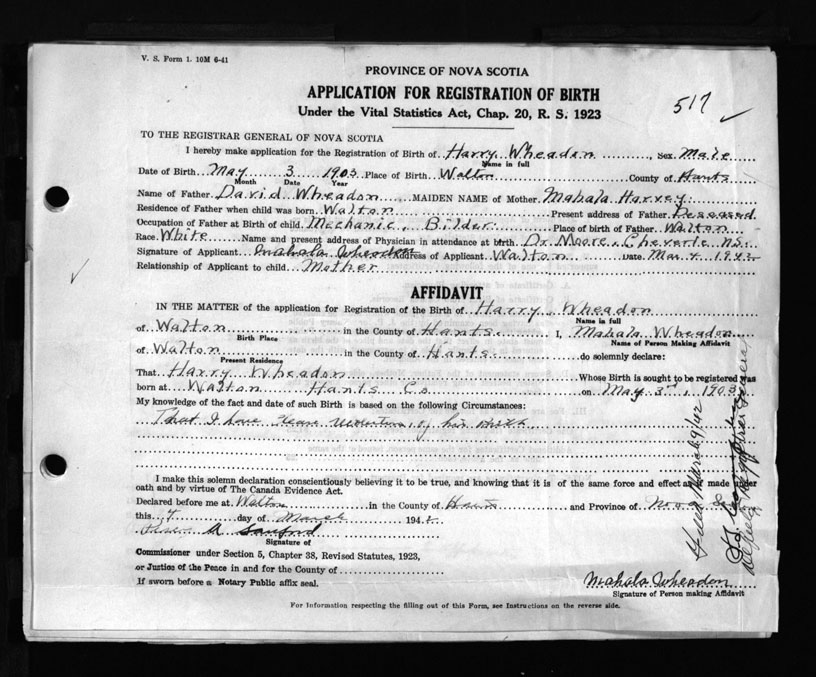 V. S. Form 1. 10M 6-41
PROVINCE OF NOVA SCOTIA
APPLICATION FOR REGISTRATION OF BIRTH
517
Under the Vital Statistics Act, Chap. 20, R. S. 1923
TO THE REGISTRAR GENERAL OF NOVA SCOTIA
I hereby make application for the Registration of Birth of Harry Wheadon, Sex Male
Name in full
Date of Birth May 3 1903 Place of Birth Walton County of Hants
Month Date Year
Name of Father David Wheadon MAIDEN NAME of Mother Mahala Harvey
Residence of Father when child was born Walton Present address of Father Deseased
Occupation of Father at Birth of child Mechanic, Bilder Place of birth of Father Walton
Race White Name and present address of Physician in attendance at birth. Dr Moore, Cheverie N.S.
Signature of Applicant Mahala Wheadon Address of Applicant Walton Date Mar 4 1942
Relationship of Applicant to child. Mother
AFFIDAVIT
IN THE MATTER of the application for Registration of the Birth of Harry Wheadon
Name in full
of Walton in the County of Hants. I, Mahala Wheadon
Birth Place Name of Person Making Affidavit
of Walton in the County of Hants. do solemnly declare:
Present Residence
That Harry Wheadon Whose Birth is sought to be registered was
born at Walton Hants Co on May 3rd, 1903
My knowledge of the fact and date of such Birth is based on the following Circumstances:
That I have of his birth
I make this solemn declaration conscientiously believing it to be true, and knowing that it is of the same force and effect as if made under
oath and by virtue of The Canada Evidence Act.
Declared before me at Walton in the County of Hants and Province of Nova S
this 4 day of March 1942
Sanford
Signature of
Commissioner under Section 5, Chapter 38, Revised Statutes, 1923,
or Justice of the Peace in and for the County of
If sworn before a Notary Public affix seal.
Mahala Wheadon
Signature of Person making Affidavit
For Information respecting the filling out of this Form, see Instructions on the reverse side.